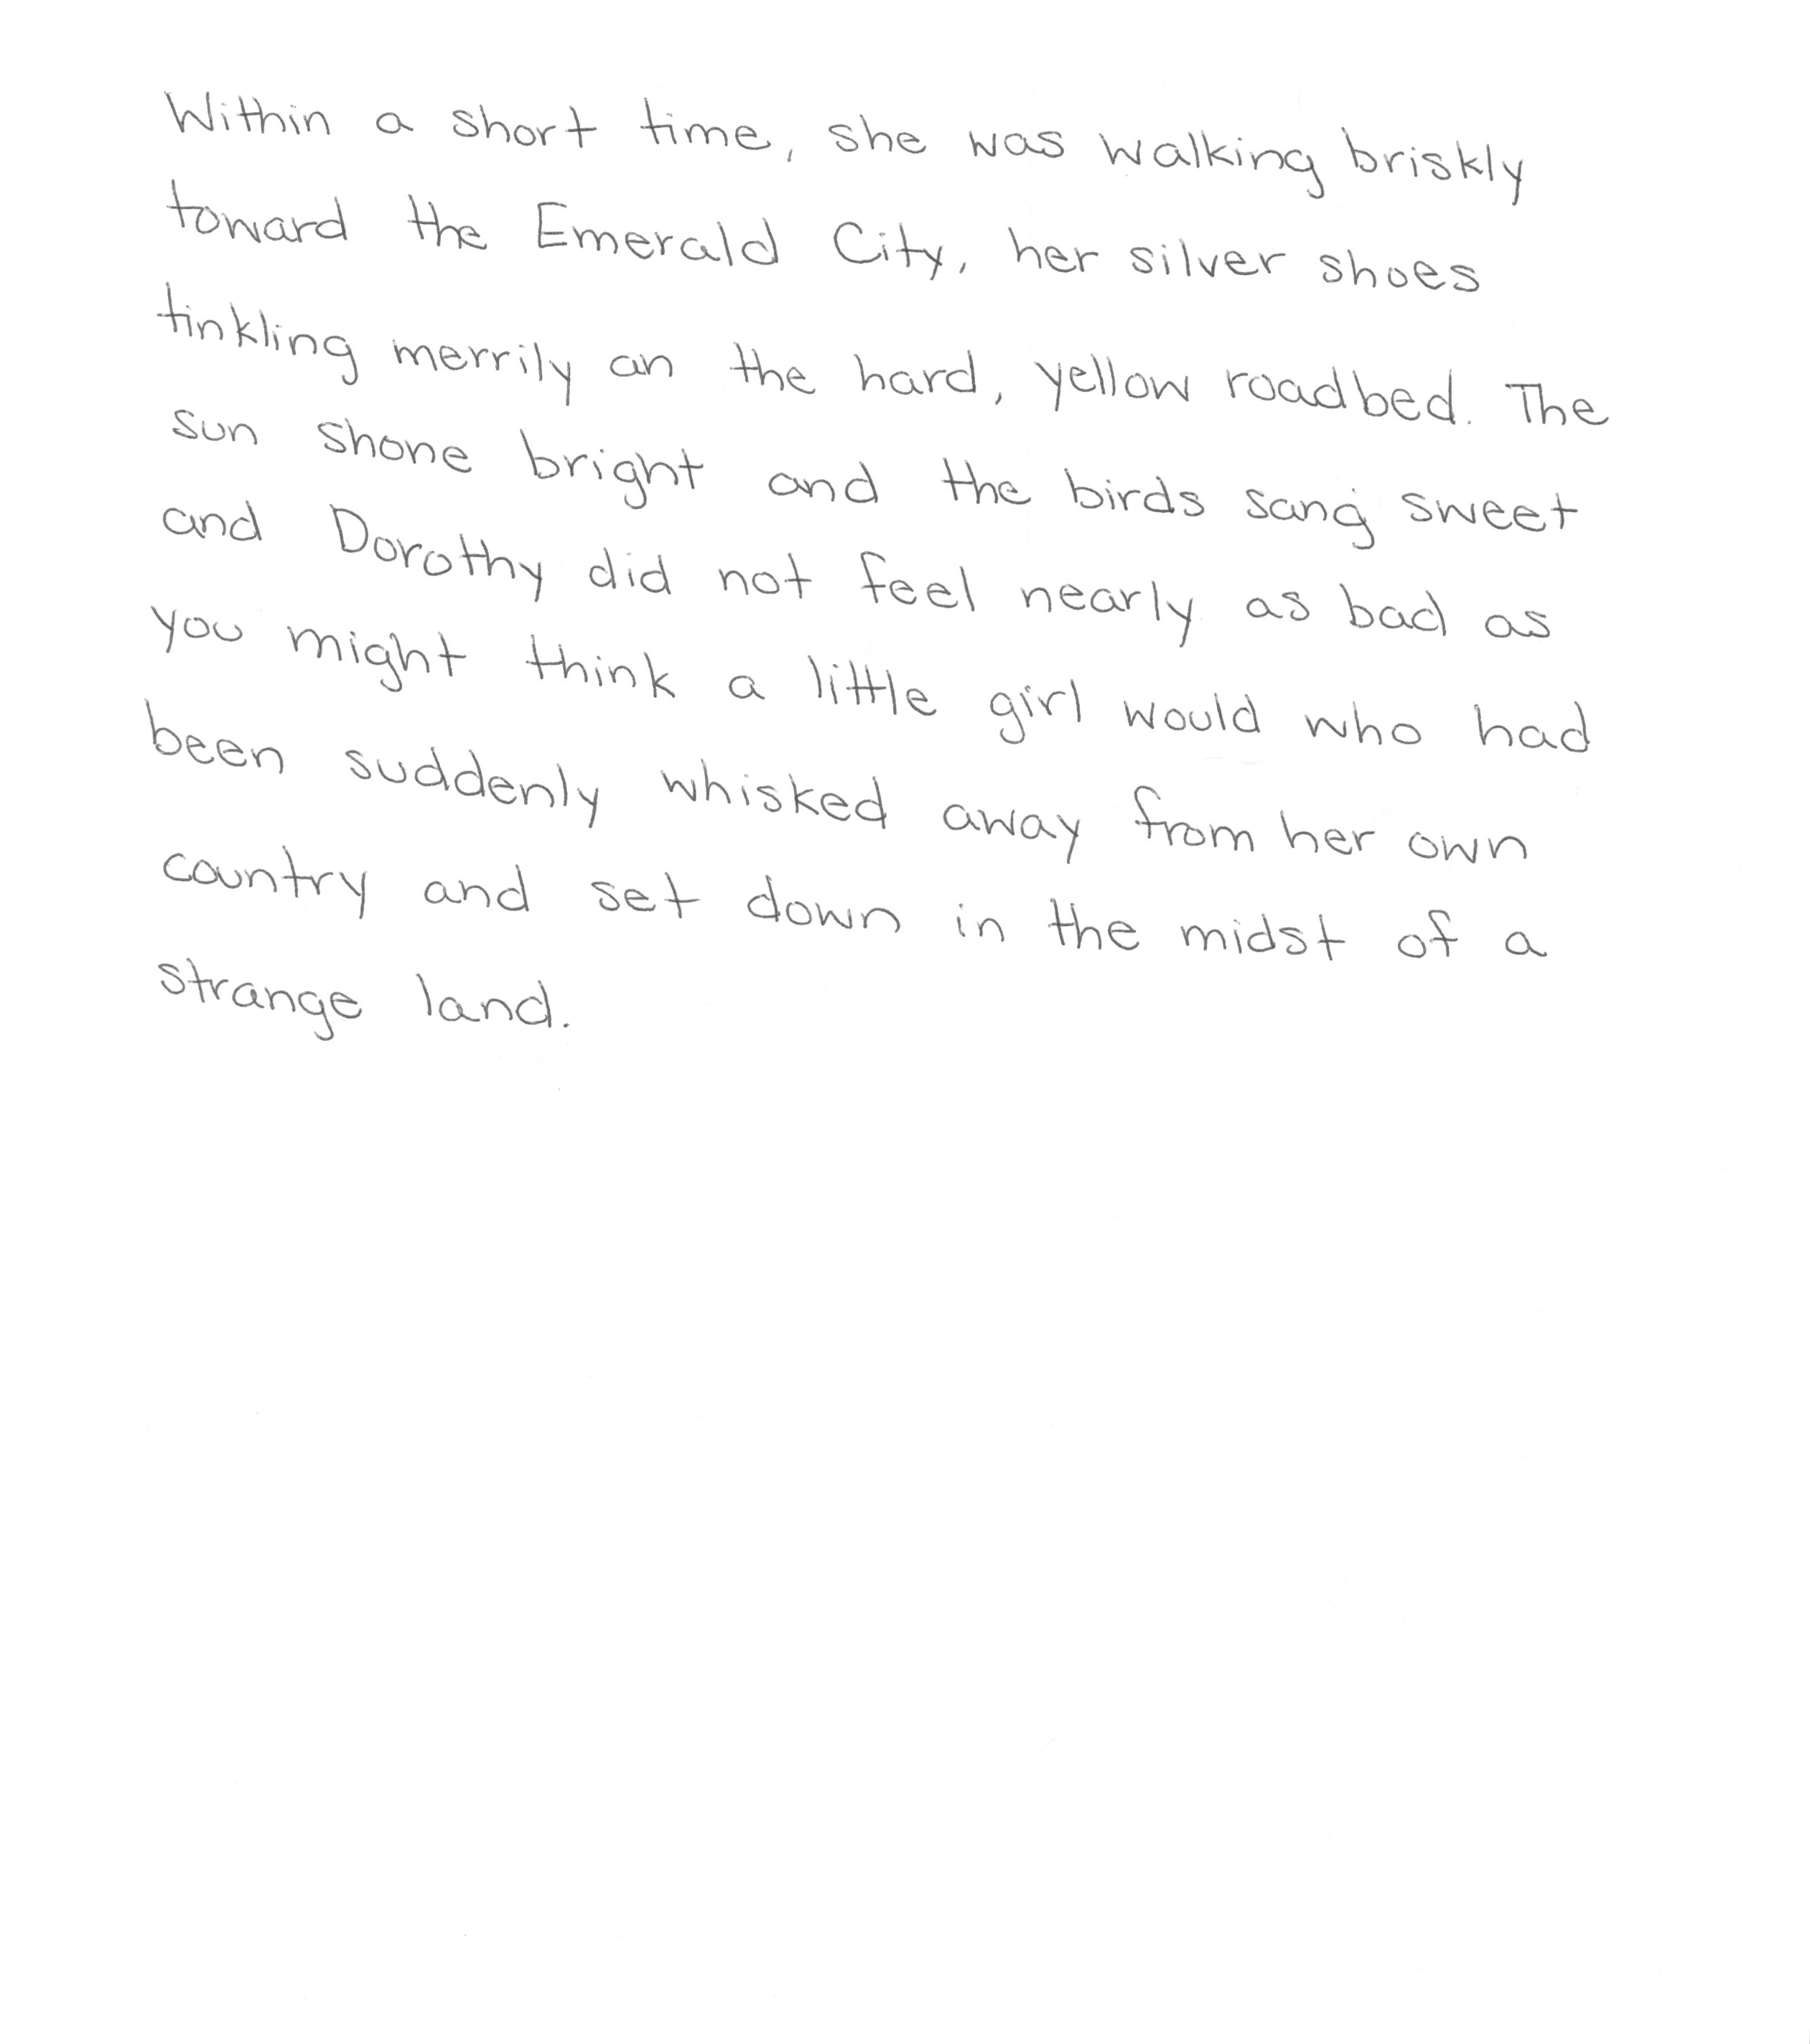 Within a short time, she was walking briskly
toward the Emerald City, her silver shoes
tinkling merrily an the hard, yellow roadbed. The
sun shone bright and the birds sang sweet
and Dorothy did not feel nearly as bad as
you might think a little girl would who had
been suddenly whisked away from her own
country and set down in the midst of a
strange land.